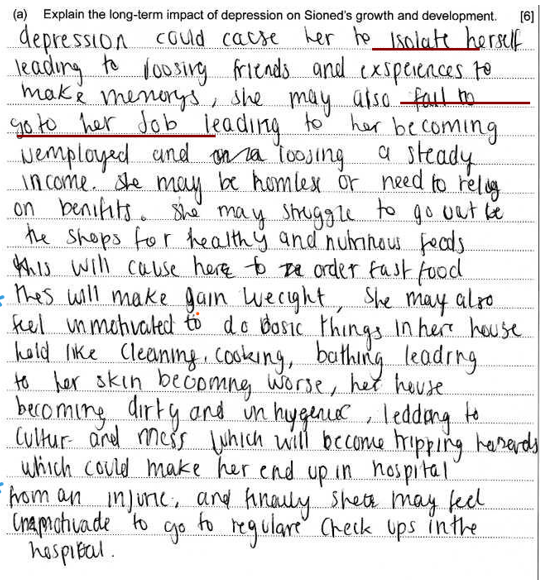 (a) Explain the long-term impact of depression on Sioned's growth and development. [6]
depression could cacse her to isolate herself
leading to loosing friends and exsperences to
make memorys, she may also fail to
go to her Job leading to her becoming
unemployed and loosing a steady
income. she may be homless or need to relig
on benifits. she may struggle to go out
the shops for healthy and nutrinous foods
this will cause here to order fast food
thes will make gain weright, she may also
feel unmotivated to do basic things in here house
hold like cleaning, cooking, bathing leadrng
to her skin becomng worse, her house
becoming dirty and unhygenic, leddang to
Cultur and mess which will become tripping hazerds
which could make her end up in hospital
from an injurie, and finally shea may feel
to go to regulare check ups in the
hospital.